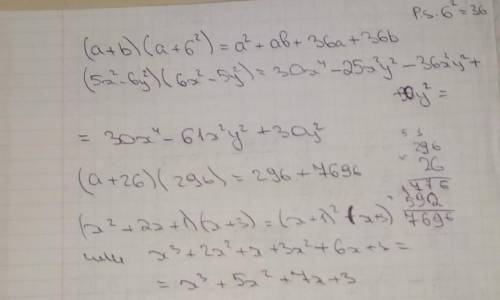 P.S. 6² = 36
(a+b)(a+6²) = a² + ab + 36a + 36b
(5x²-6y²)(6x²-5y²) = 30x⁴ - 25x²y² - 36x²y² +
+30y² =
= 30x⁴ - 61x²y² + 30y²
(a+26)(296) = 296 + 7696
296
26
1776
592
7696
(x²+2x+1)(x+3) = (x+1)²(x+3)
или x³+2x²+x+3x²+6x+3 =
= x³+5x²+7x+3